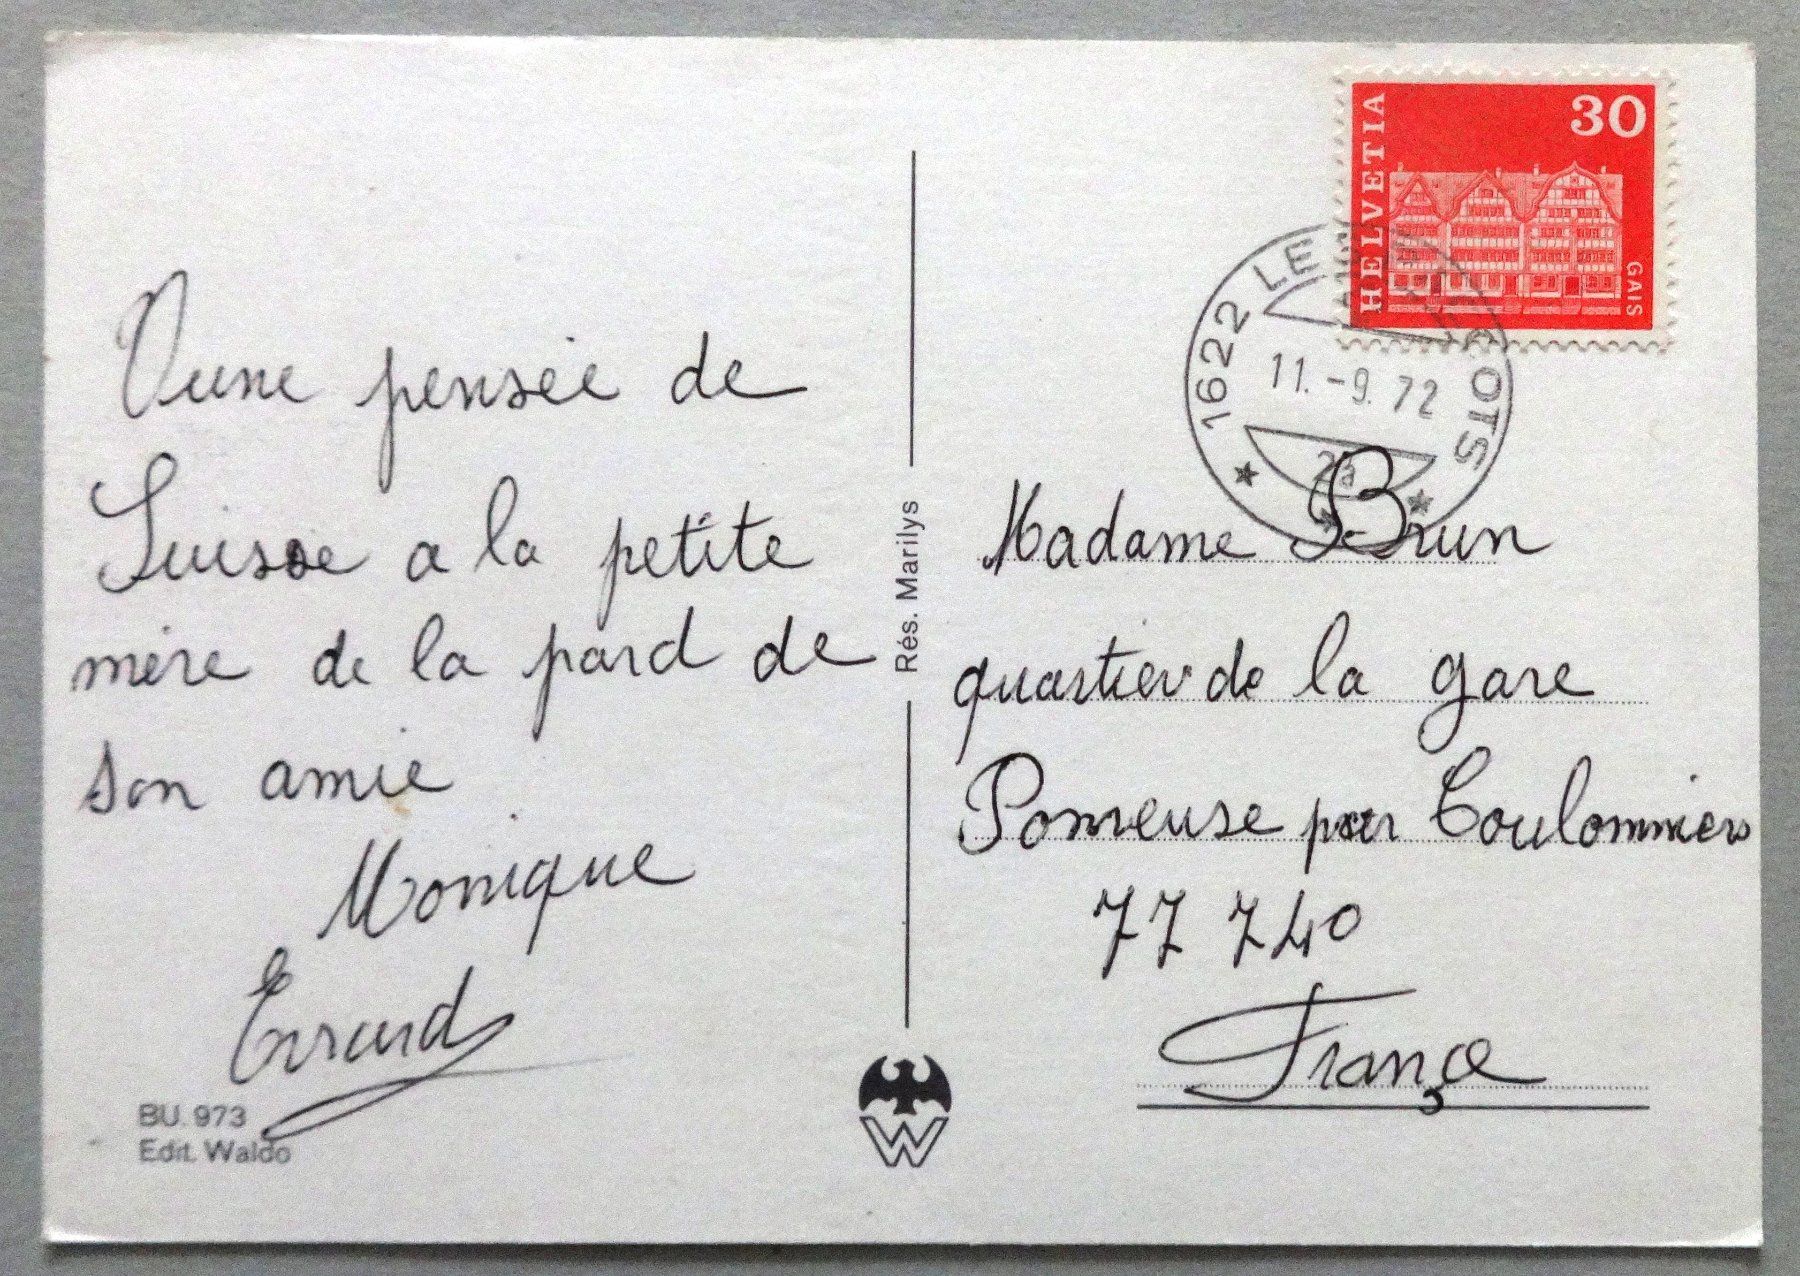 Vune pensée de
Suisse a la petite
mère de la pard de
son amie
Monique
Errard
BU. 973
Edit. Waldo
Rés. Marilys
W
HELVETIA
30
GAIS
1622 LE
OTS
11.-9.72
Madame Brun
quartier de la gare
Pomreuse par Coulommiers
77 740
Françe